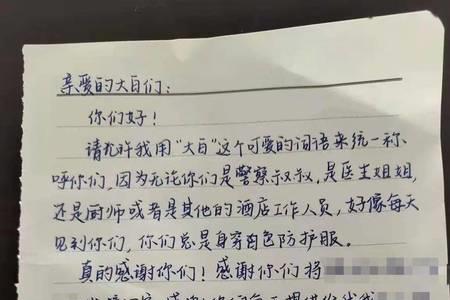 亲爱的大白们：
你们好！
请允许我用“大白”这个可爱的词语来统一称
呼你们，因为无论你们是警察叔叔，是医生姐姐，
还是厨师或者是其他的酒店工作人员，好像每天
见到你们，你们总是身穿白色防护服。
真的感谢你们！感谢你们将